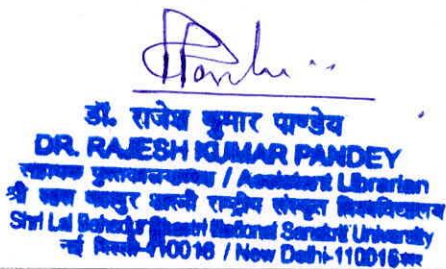 डॉ. राजेश कुमार पाण्डेय
DR. RAJESH KUMAR PANDEY
सहायक पुस्तकालयाध्यक्ष / Assistant Librarian
श्री लाल बहादुर शास्त्री राष्ट्रीय संस्कृत विश्वविद्यालय
Shri Lal Bahadur Shastri National Sanskrit University
नई दिल्ली-110016 / New Delhi-110016